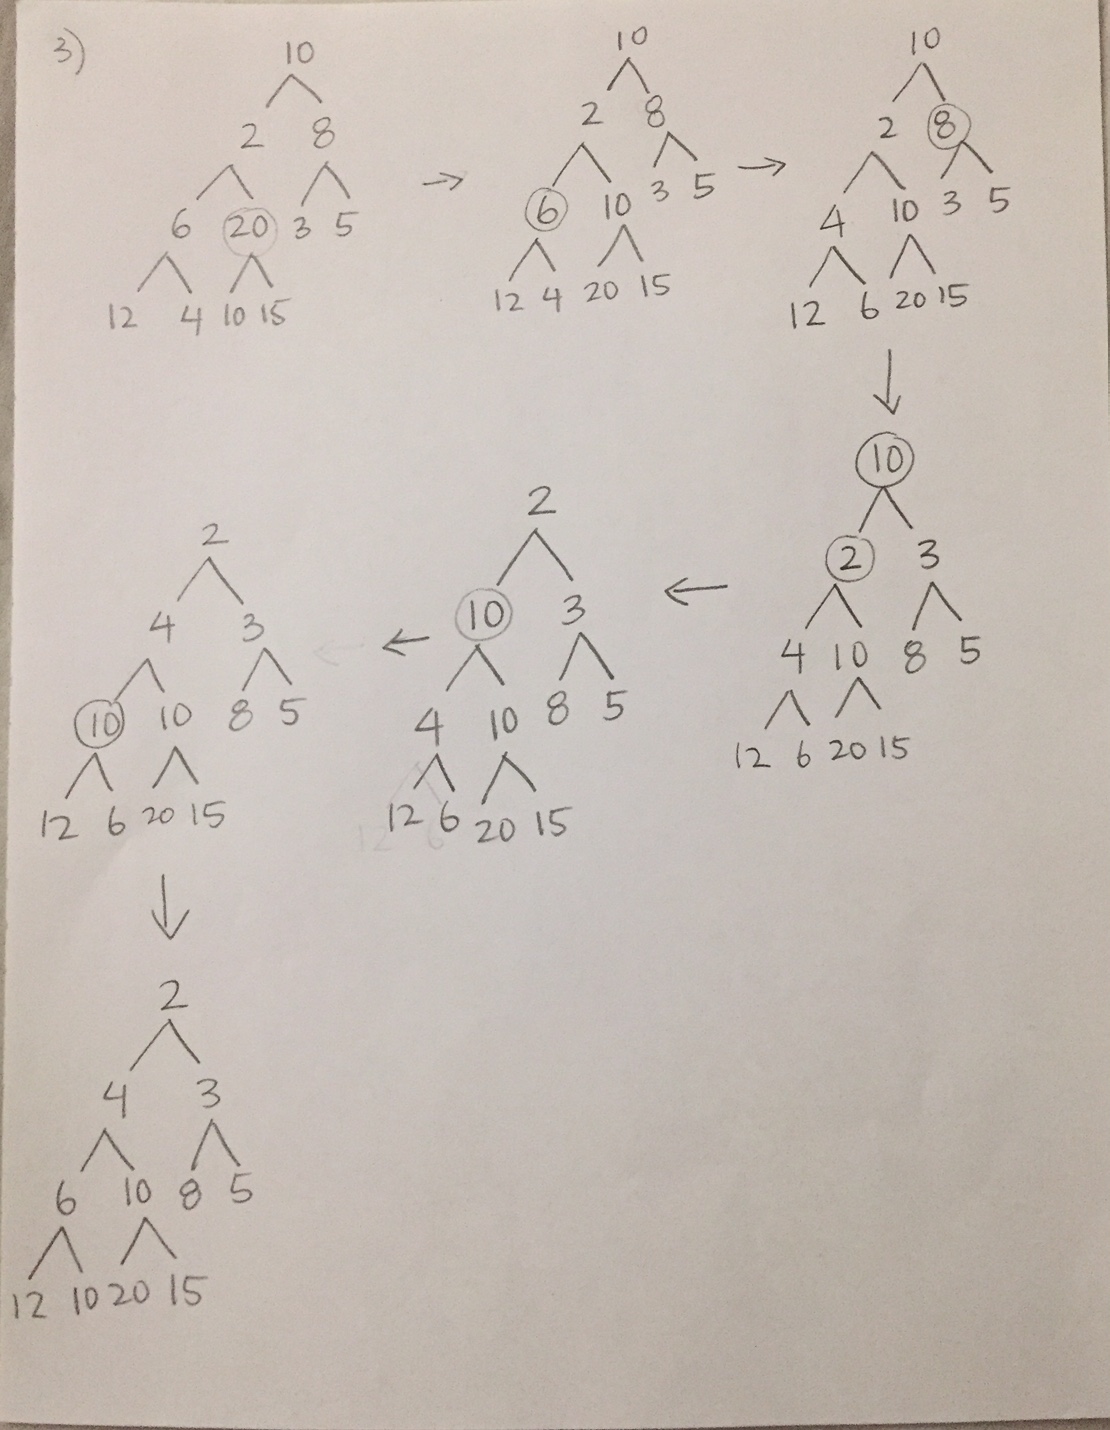 3)
10
2 8
6 20 3 5
12 4 10 15
→
10
2 8
6 10 3 5
12 4 20 15
→
10
2 8
4 10 3 5
12 6 20 15
↓
10
2 3
4 10 8 5
12 6 20 15
←
2
10 3
4 10 8 5
12 6 20 15
←
2
4 3
10 10 8 5
12 6 20 15
↓
2
4 3
6 10 8 5
12 10 20 15